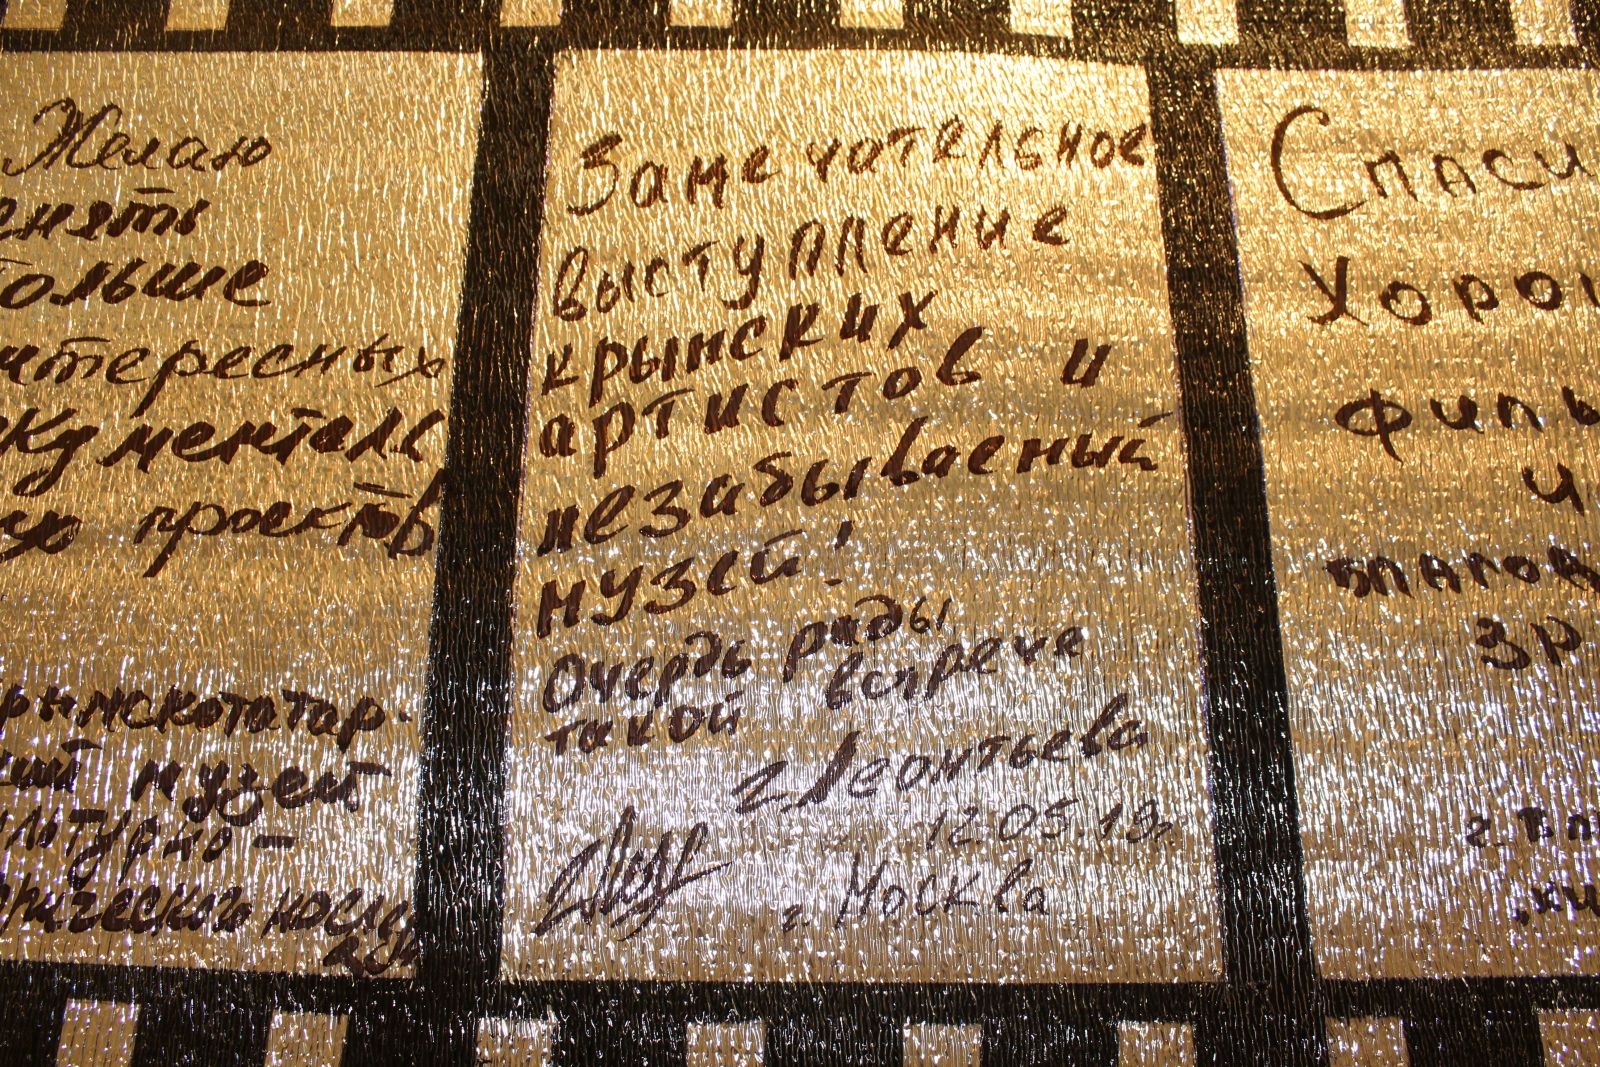 Желаю
енять
больше
нтересных
окументаль
ую проектов
рымскотатар-
кий музей
ультурно-
орического насле
Замечательное
выступление
крымских
артистов и
незабываемый
музей!
Очердь рады
такой встрече
г. Леонтьева
12.05.19.
г. Москва
Спаси
Хорош
филь
и
благод
зр
г. Вл